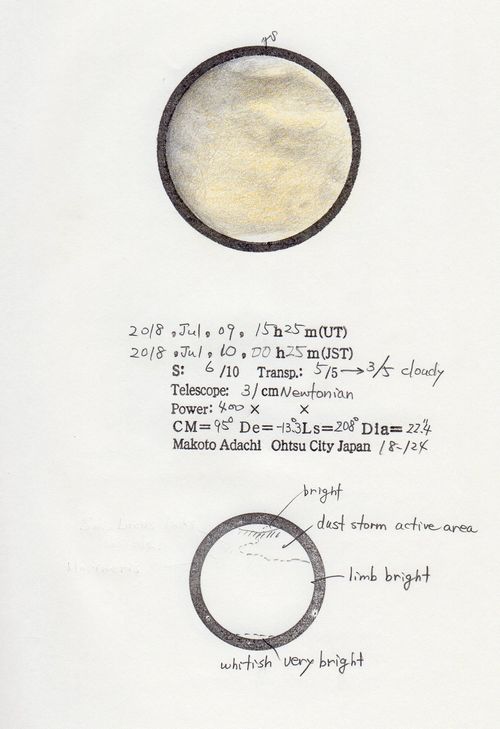 S
2018, Jul, 09, 15h25m(UT)
2018, Jul, 10, 00h25m(JST)
S: 6/10 Transp.: 5/5→3/5 cloudy
Telescope: 31cm Newtonian
Power: 400× ×
CM=95° De=-13.3 Ls=208° Dia=22".4
Makoto Adachi Ohtsu City Japan 18-124
bright
dust storm active area
limb bright
whitish very bright